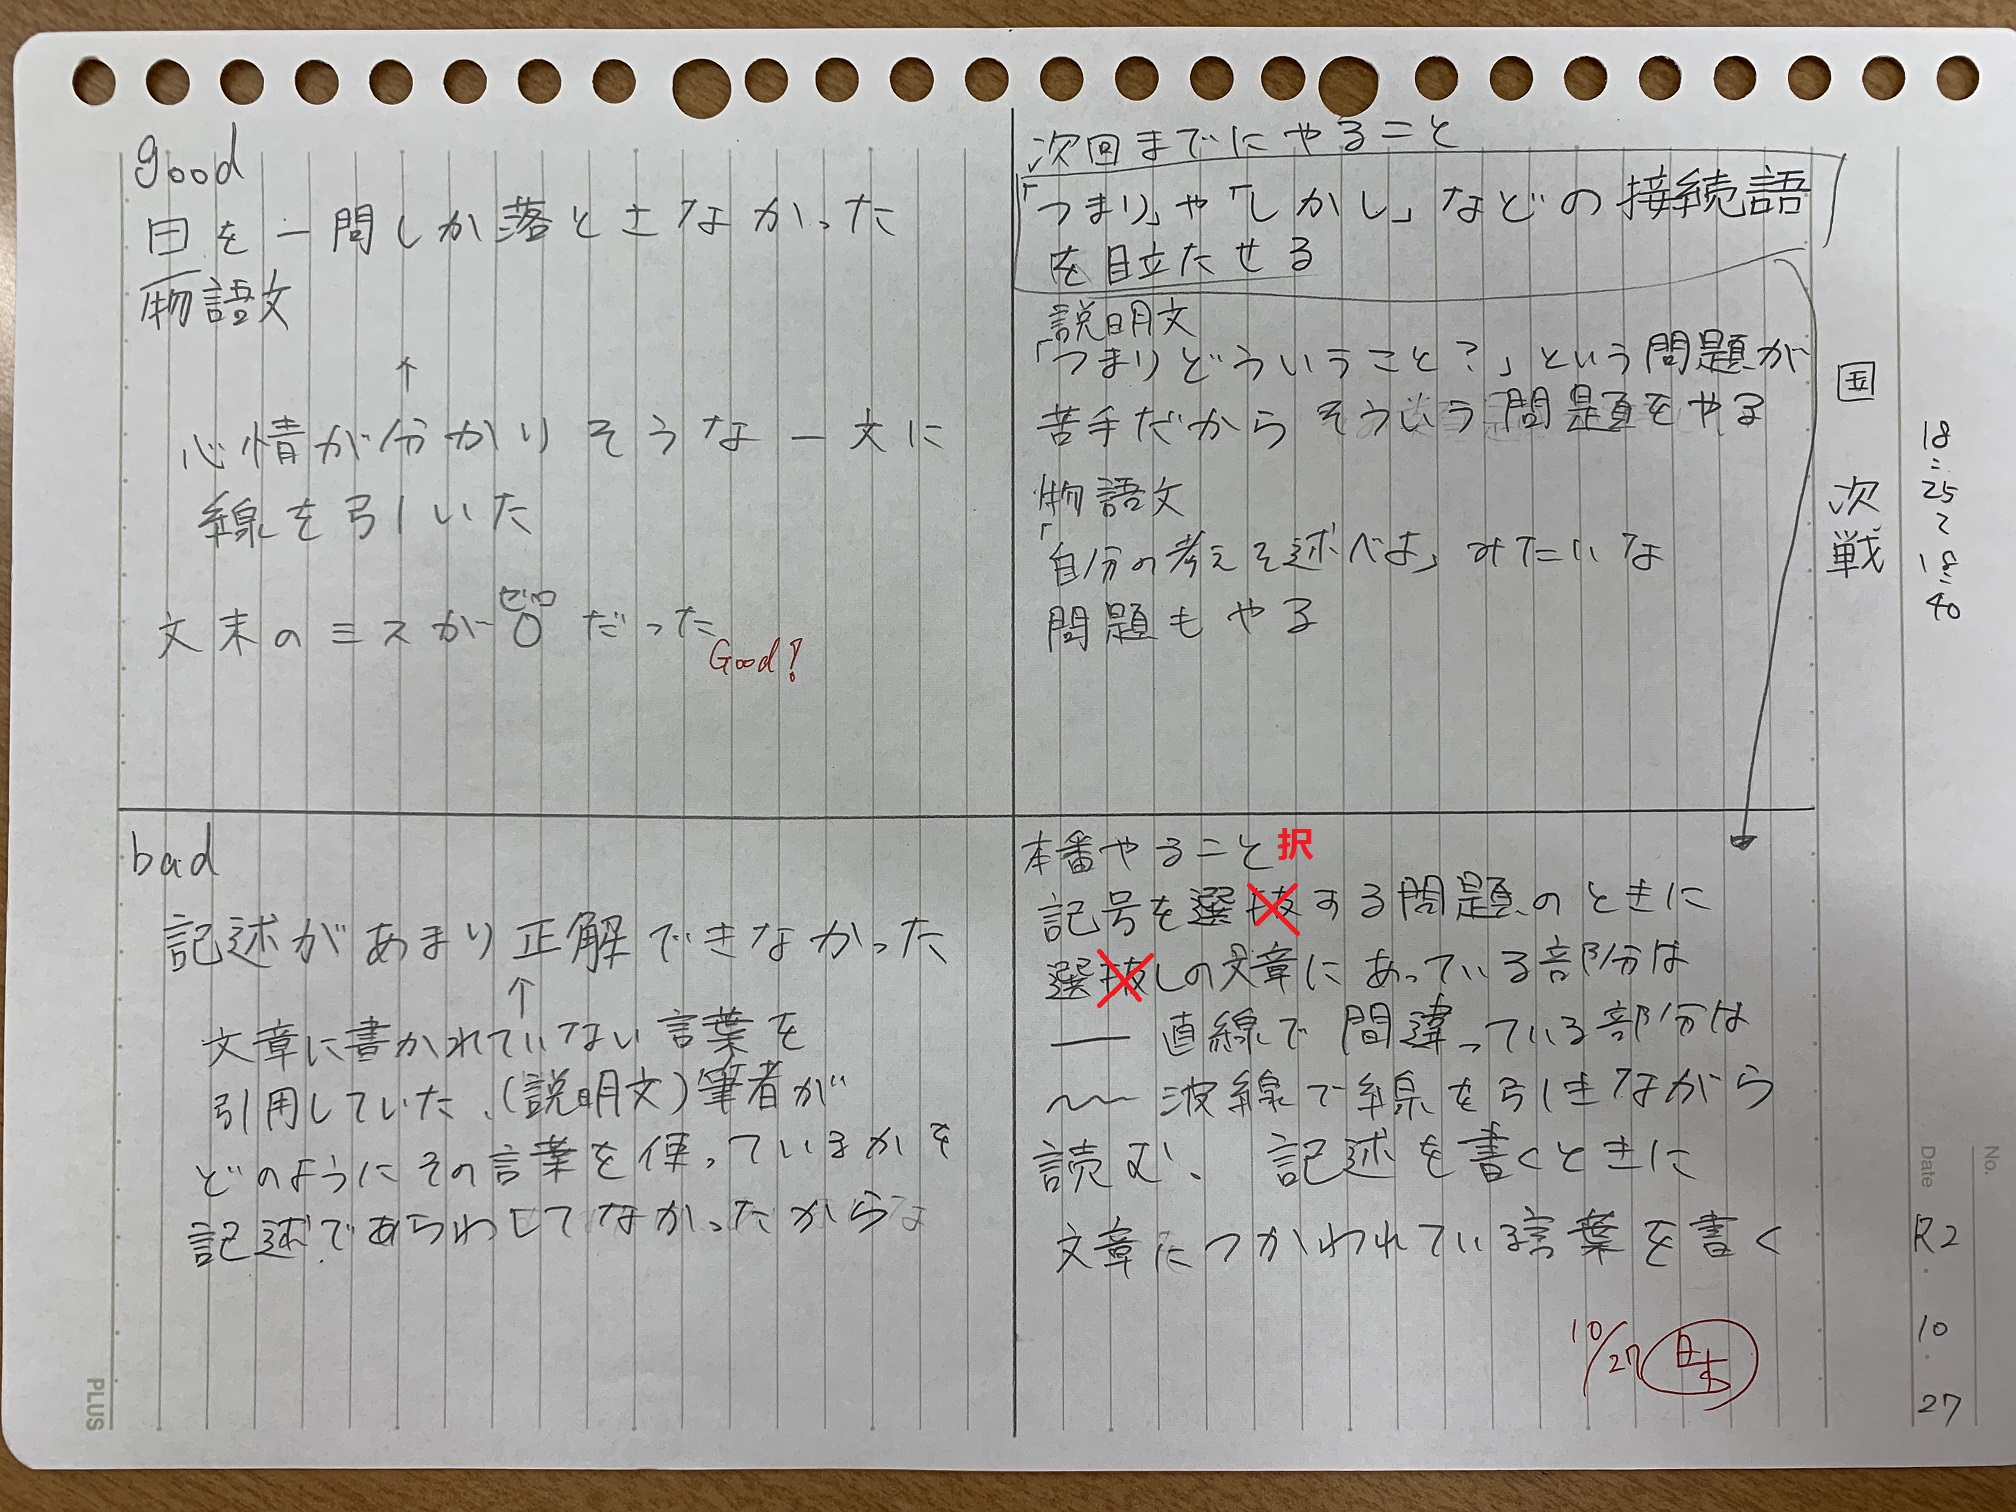 good
田を一問しか落とさなかった
物語文
↑
心情が分かりそうな一文に
線を引いた
ゼロ
文末のミスが0だった
Good!
次回までにやること
「つまり」や「しかし」などの接続語
を目立たせる
説明文
「つまりどういうこと?」という問題が
苦手だからそういう問題をやる
物語文
「自分の考えを述べよ」みたいな
問題もやる
国 次戦
18:25~18:40
bad
記述があまり正解できなかった
↑
文章に書かれていない言葉を
引用していた、(説明文)筆者が
どのようにその言葉を使っているかを
記述であらわしてなかったから
本番やること
択
記号を選抜する問題のときに
選抜しの文章にあっている部分は
― 直線で間違っている部分は
〜〜 波線で線を引きながら
読む、記述を書くときに
文章につかわれている言葉を書く
10/27
No.
Date
R2.10.27
PLUS